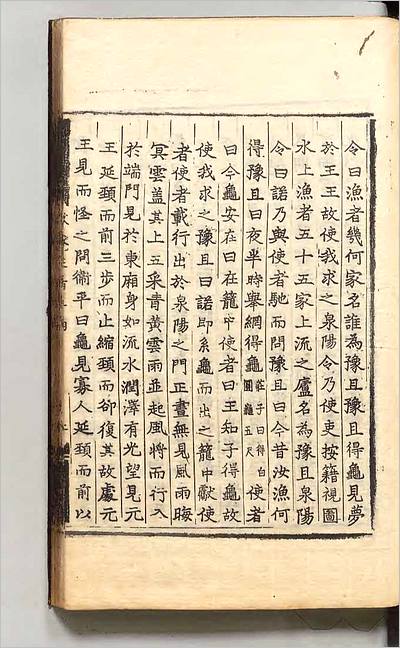 令曰漁者幾何家名誰為豫且豫且得龜見夢
於王王故使我求之泉陽令乃使吏按籍視圖
水上漁者五十五家上流之廬名為豫且泉陽
令曰諾乃與使者馳而問豫且曰今昔汝漁何
得豫且曰夜半時舉網得龜莊子曰得白圓龜五尺使者
曰今龜安在曰在籠中使者曰王知子得龜故
使我求之豫且曰諾即系龜而出之籠中獻使
者使者載行出於泉陽之門正晝無見風雨晦
冥雲蓋其上五采青黃雲雨並起風將而行入
於端門見於東廂身如流水潤澤有光望見元
王延頸而前三步而止縮頸而卻復其故處元
王見而怪之問衛平曰龜見寡人延頸而前以